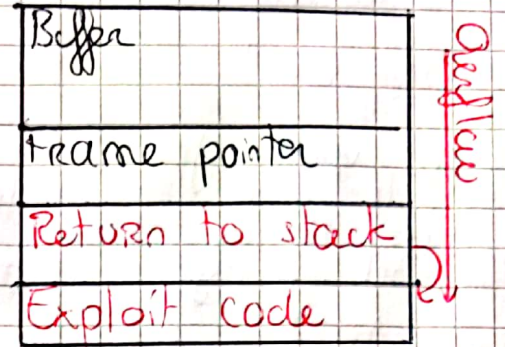 Buffer
Frame pointer
Return to stack
Exploit code
Overflow